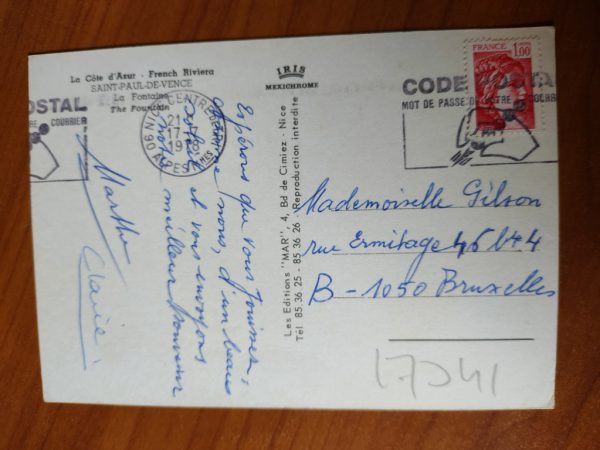 La Côte d'Azur - French Riviera
SAINT-PAUL-DE-VENCE
La Fontaine
The Fountain
IRIS
MEXICHROME
Espérons que vous jouissez,
comme nous, d'un beau
soleil et vous envoyons
notre meilleur souvenir
Marthe
Claire.
Les Editions "MAR", 4, Bd de Cimiez - Nice
Tél 85.36.25 - 85.36.26 Reproduction interdite
06 NICE CENTRE
21-
17-7
1978
ALPES MMES
POSTAL
COURRIER
FRANCE
1,00
CODE POSTAL
MOT DE PASSE DE VOTRE COURRIER
Mademoiselle Gilson
rue Ermitage 46 bt 4
B-1050 Bruxelles
17341